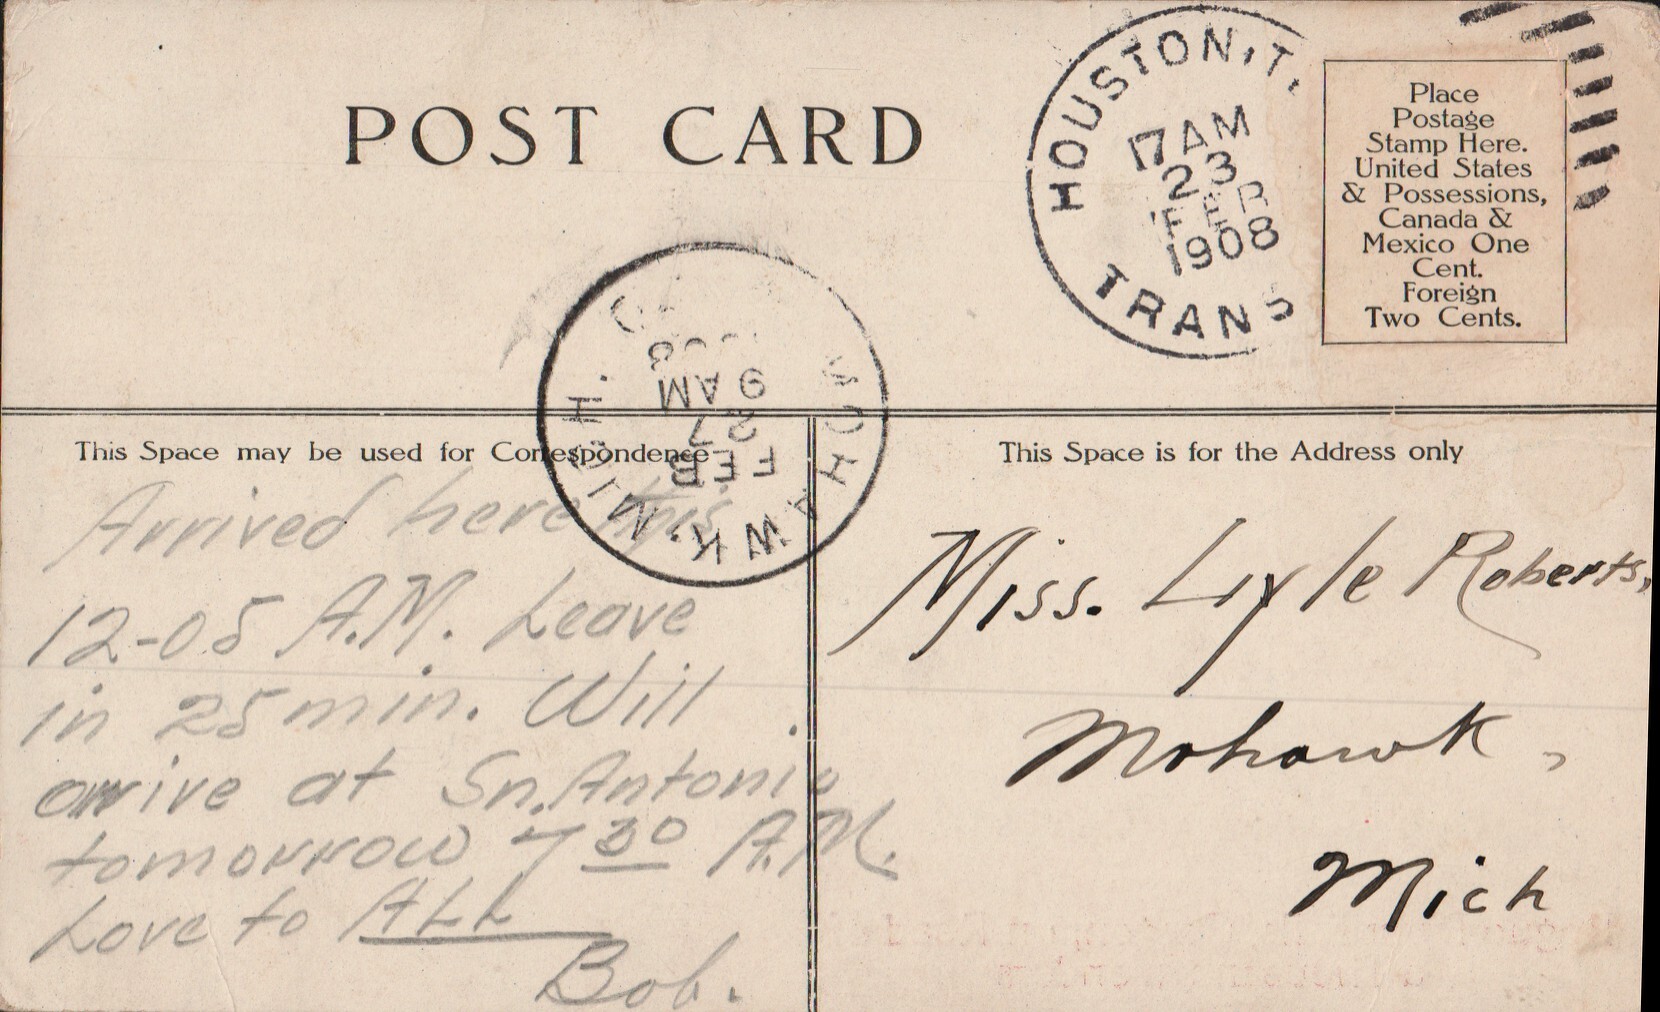 POST CARD
HOUSTON, T.
17 AM
23
FEB
1908
TRANS
Place
Postage
Stamp Here.
United States
& Possessions,
Canada &
Mexico One
Cent.
Foreign
Two Cents.
MOHAWK. MICH.
FEB
27
9 AM
This Space may be used for Correspondence
Arrived here this
12-05 A.M. Leave
in 25 min. Will
arrive at Sn. Antonio
tomorrow 7 30 A.M.
Love to ALL
Bob.
This Space is for the Address only
Miss. Lyle Roberts,
Mohawk,
Mich